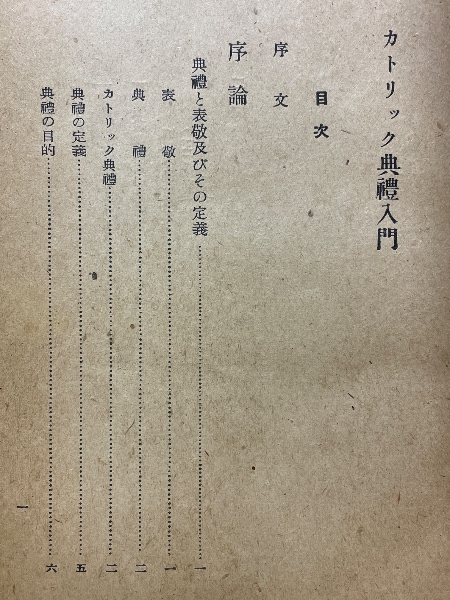 カトリック典禮入門
目次
序文
序論
典禮と表敬及びその定義……一
表敬……一
典禮……二
カトリック典禮……二
典禮の定義……五
典禮の目的……六
一